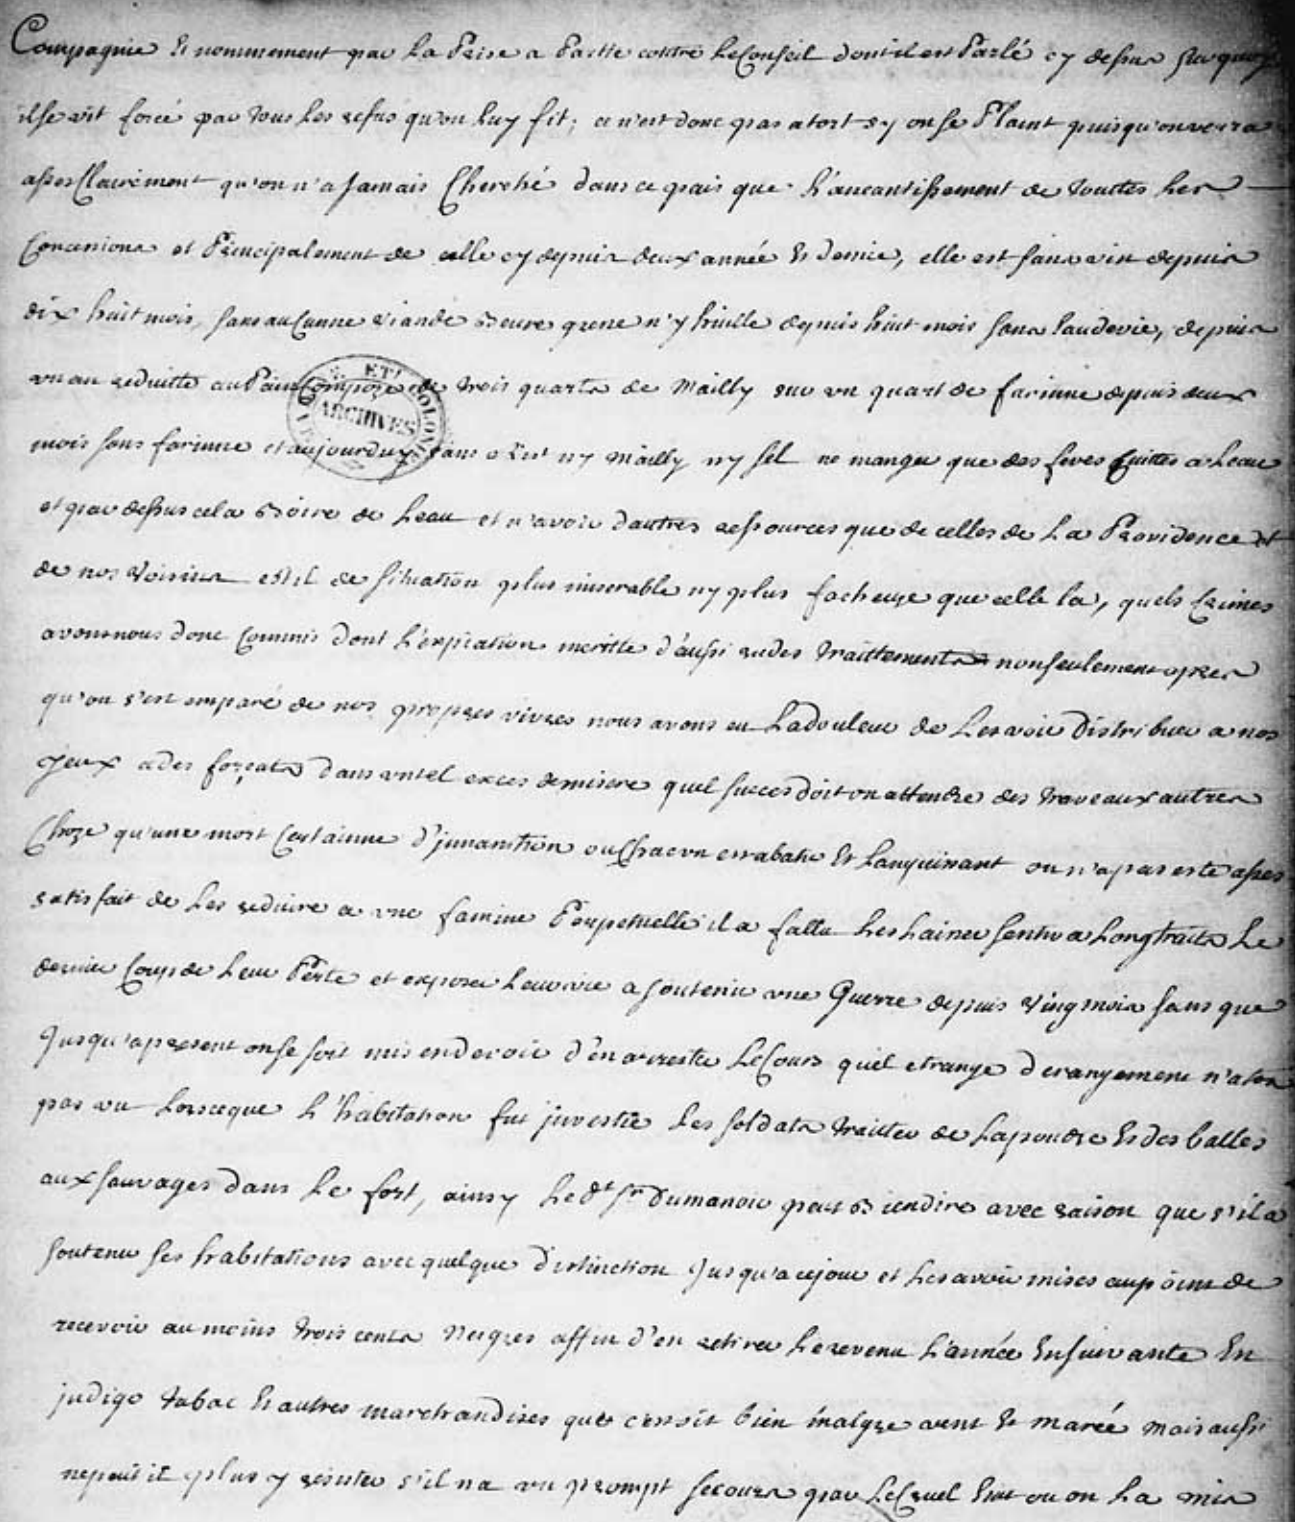 Compagnie et nommement par la Prise a Partie contre le Conseil dont il est Parlé cy dessus sur quoy
il se vit forcé par tous les refus qu'on luy fit; ce n'est donc pas a tort sy on se Plaint puisqu'on verra
asses Clairement qu'on n'a Jamais Cherché dans ce païs que l'aneantissement de touttes les
Concessions et Principalement de celle cy depuis deux année et demie, elle est sans vin depuis
dix huit mois, sans aucunne viande Beure grese n'y huille depuis huit mois sans Laudevie, depuis
un an reduitte au Pain Compoze de trois quarts de Mailly sur un quart de farinne depuis deux
mois sans farinne et aujourduy sans ny Mailly ny sel ne manger que des feves Cuittes a Leau
et par dessus cela Boire de Leau et n'avoir d'autres ressources que de celles de La Providence et
de nos Voisins est il de situation plus miserable ny plus facheuze que celle la, quels Crimes
avons nous donc Commis dont L'expiation meritte d'aussi rudes traittements non seulement apres
qu'on s'est emparé de nos propres vivres nous avons eu La douleur de Les voir distribuer a nos
yeux a des forçats dans un tel exces de misere quel succes doit on attendre des traveaux autres
Choze qu'une mort Certainne d'innanition ou Chacun est abatu et Languissant on n'a pas esté asses
satisfait de Les reduire a une famine Perpetuelle il a fallu Les Laisser sentir a Long traits Le
dernier Coup de Leur Perte et exposer Leur vie a soutenir une Guerre depuis Vingt mois sans que
Jusqu'apresent on se soit mis en devoir d'en arrester Le Cours quel etrange derangement n'a ton
pas vu Lorsceque L'habitation fut investie Les soldats traitter de La poudre et des balles
aux sauvages dans Le fort, ainsy Le dt. Sr. Dumanoir peut Bien dire avec raison que s'il a
soutenu ses habitations avec quelque distinction Jusqu'a ce jour et Les avoir mises au point de
recevoir au moins trois cents Negres affin d'en retirer Le revenu L'année Ensuivante En
indigo tabac et autres marchandises que c'en soit bien malgre vent et marée mais aussi
ne peut il plus y resister s'il n'a un prompt secours par Le Cruel Etat ou on La mis
ARCHIVES ET COLONIES